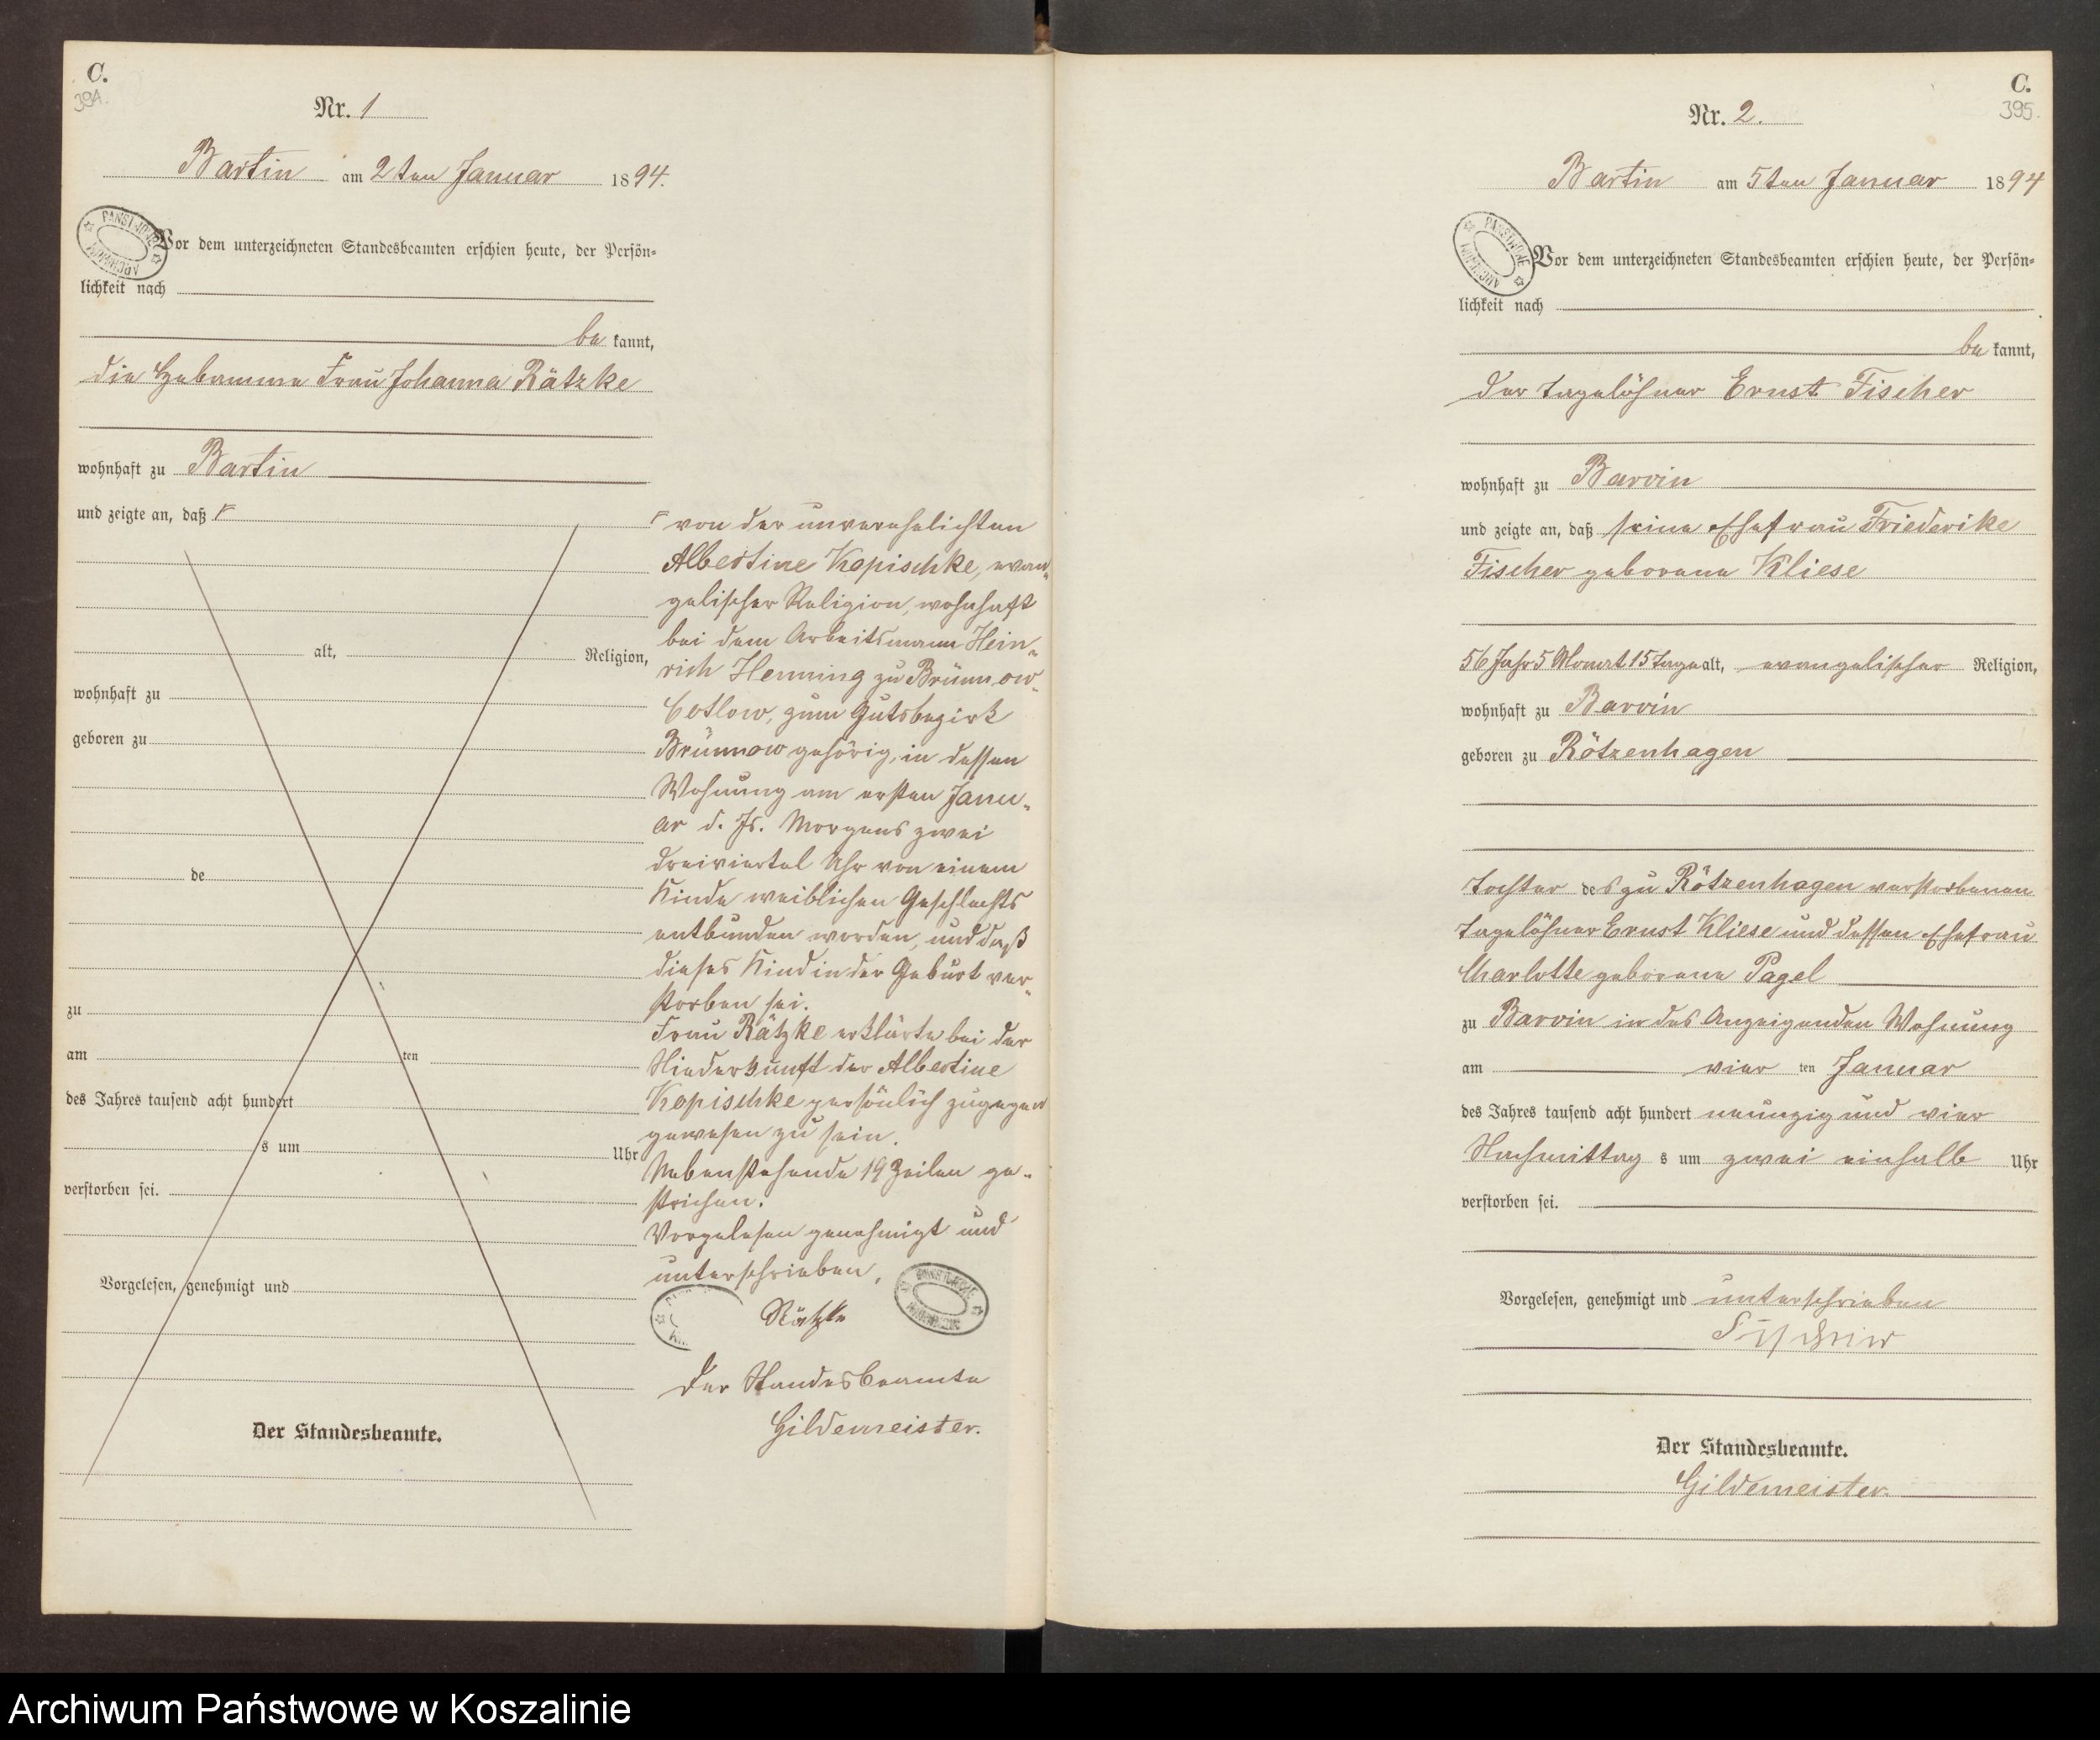 C.
394.
Nr. 1
Bartin am 2ten Januar 1894.
Vor dem unterzeichneten Standesbeamten erschien heute, der Persön-
lichkeit nach
be kannt,
die Hebamme Frau Johanna Rätzke
wohnhaft zu Bartin
und zeigte an, daß
alt, Religion,
wohnhaft zu
geboren zu
de
zu
am ten
des Jahres tausend acht hundert
s um Uhr
verstorben sei.
Vorgelesen, genehmigt und
Der Standesbeamte.
von der unverehelichten
Albertine Kopischke, evan-
gelischer Religion, wohnhaft
bei dem Arbeitsmann Hein-
rich Henning zu Brünnow-
Cotlow, zum Gutsbezirk
Brünnow gehörig, in dessen
Wohnung am ersten Janu-
ar d. Js. Morgens zwei
dreiviertel Uhr von einem
Kinde weiblichen Geschlechts
entbunden worden, und daß
dieses Kind in der Geburt ver-
storben sei.
Frau Rätzke erklärte bei der
Niederkunft der Albertine
Kopischke persönlich zugegen
gewesen zu sein.
Nebenstehende 19 Zeilen ge-
strichen.
Vorgelesen genehmigt und
unterschrieben,
Rätzke
Der Standesbeamte
Gildemeister.
C.
395.
Nr. 2.
Bartin am 5ten Januar 1894
PAŃSTWOWE ARCHIWUM
Vor dem unterzeichneten Standesbeamten erschien heute, der Persön-
lichkeit nach
be kannt,
der Tagelöhner Ernst Fischer
wohnhaft zu Barvin
und zeigte an, daß seine Ehefrau Friederike
Fischer geborene Kliese
56 Jahr 5 Monat 15 Tage alt, evangelischer Religion,
wohnhaft zu Barvin
geboren zu Rötzenhagen
Tochter des zu Rötzenhagen verstorbenen
Tagelöhner Ernst Kliese und dessen Ehefrau
Charlotte geborene Pagel
zu Barvin in des Anzeigenden Wohnung
am vier ten Januar
des Jahres tausend acht hundert neunzig und vier
Nachmittag s um zwei einhalb Uhr
verstorben sei.
Vorgelesen, genehmigt und unterschrieben
Fischer
Der Standesbeamte.
Gildemeister.
Archiwum Państwowe w Koszalinie